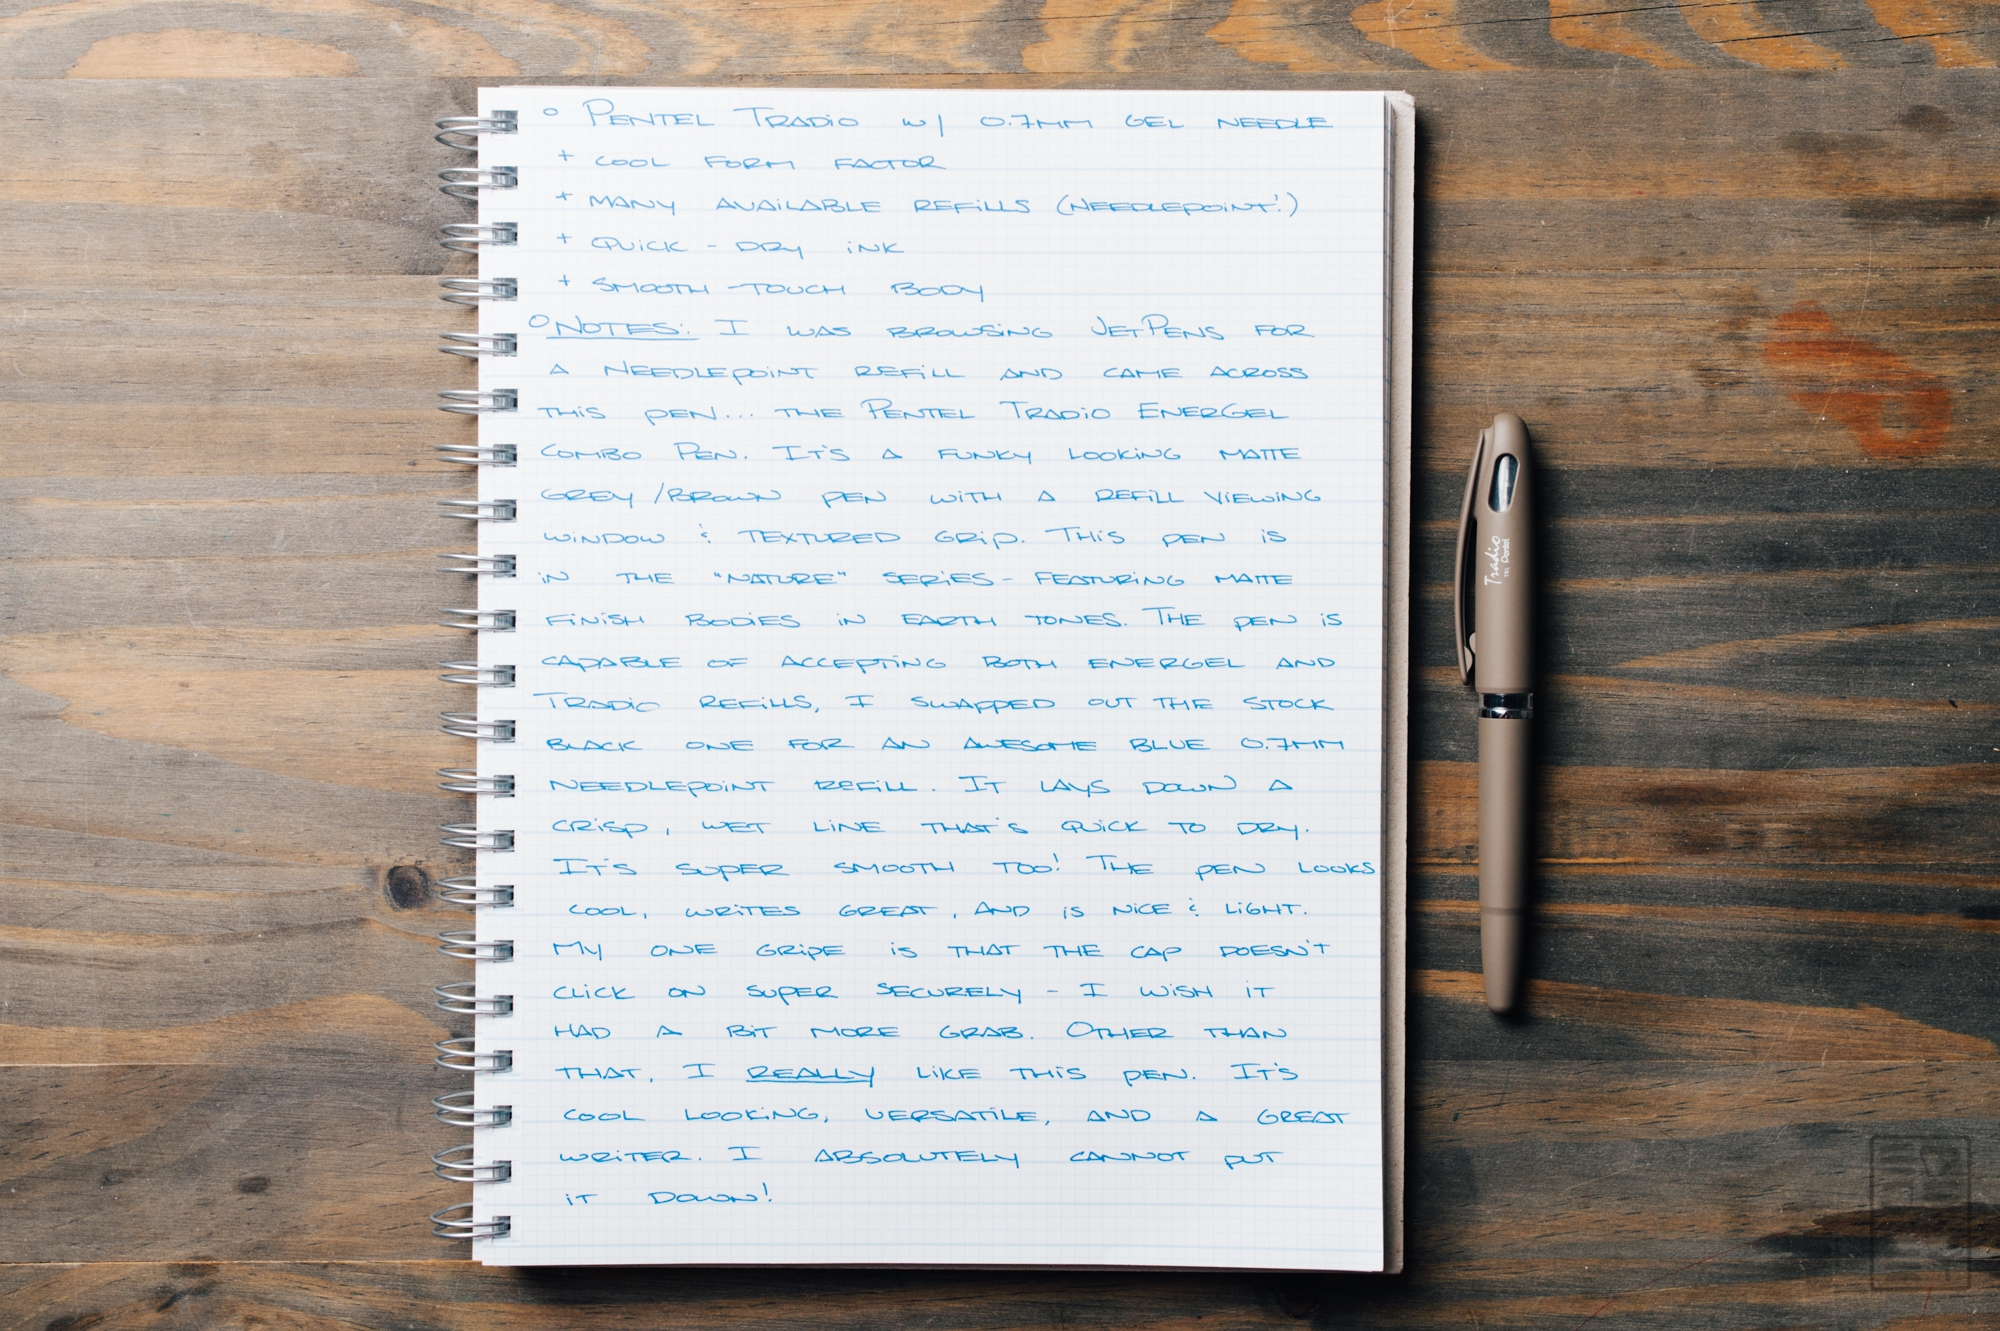 ° Pentel Tradio w/ 0.7mm Gel Needle
+ Cool form factor
+ Many available refills (Needlepoint!)
+ Quick-dry ink
+ Smooth-touch body
° Notes: I was browsing JetPens for
a needlepoint refill and came across
this pen... the Pentel Tradio EnerGel
Combo Pen. It's a funky looking matte
grey/brown pen with a refill viewing
window & textured grip. This pen is
in the "Nature" series - featuring matte
finish bodies in earth tones. The pen is
capable of accepting both energel and
Tradio refills, I swapped out the stock
black one for an awesome blue 0.7mm
needlepoint refill. It lays down a
crisp, wet line that's quick to dry.
It's super smooth too! The pen looks
cool, writes great, and is nice & light.
My one gripe is that the cap doesn't
click on super securely - I wish it
had a bit more grab. Other than
that, I really like this pen. It's
cool looking, versatile, and a great
writer. I absolutely cannot put
it down!
Tradio
TRL Pentel